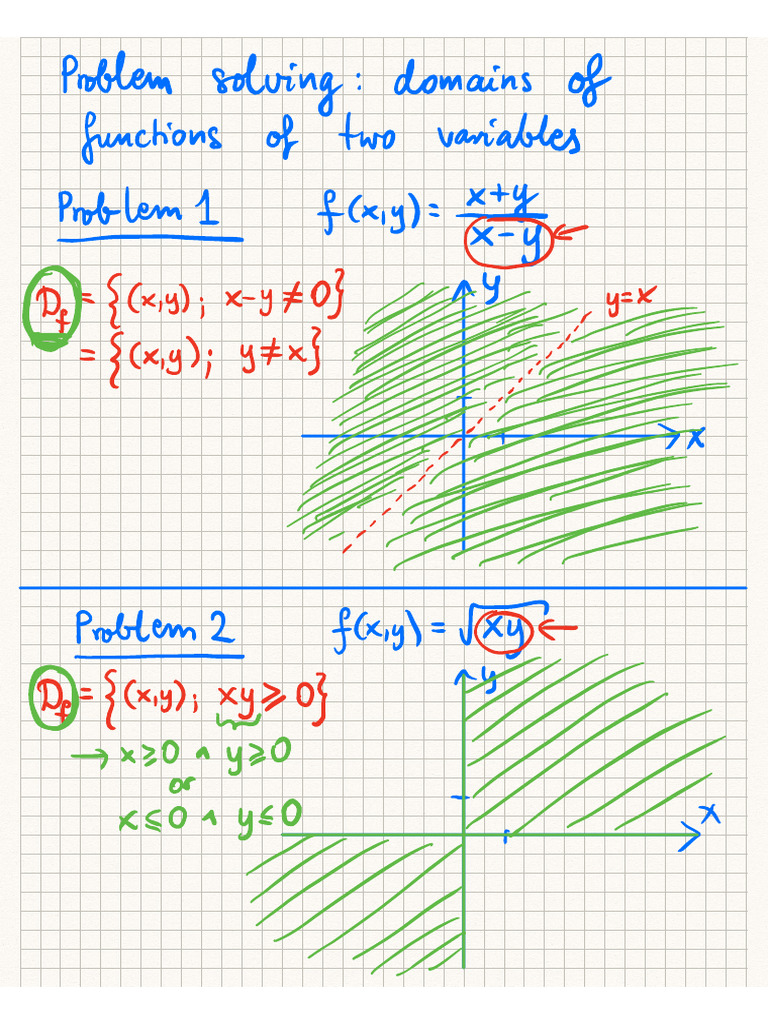 Problem solving: domains of
functions of two variables
Problem 1 f(x,y) = x+y / x-y ←
D_f = {(x,y); x-y ≠ 0}
= {(x,y); y ≠ x}
y
y=x
x
Problem 2 f(x,y) = √xy ←
D_f = {(x,y); xy ⩾ 0}
→ x ⩾ 0 ∧ y ⩾ 0
or
x ⩽ 0 ∧ y ⩽ 0
y
x